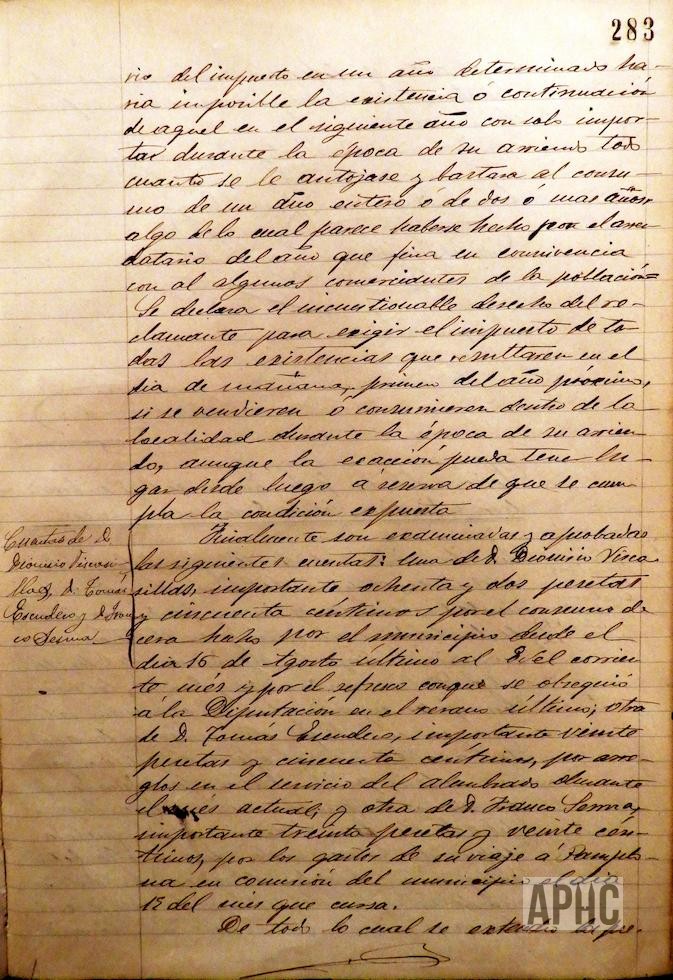 283
rio del impuesto en un año determinado ha-
ria imposible la existencia ó continuación
de aquel en el siguiente año con solo impor-
tar durante la época de su arriendo todo
cuanto se le antojase y bastara al consu-
mo de un año entero ó de dos ó mas años,
algo de lo cual parece haberse hecho por el arren-
datario del año que fina en connivencia
con al algunos comerciantes de la población=
Se declara el incuestionable derecho del re-
clamante para exigir el impuesto de to-
das las existencias que resultaren en el
dia de mañana, primero del año próximo,
si se vendieren ó consumieren dentro de la
localidad durante la época de su arrien-
do, aunque la exacción pueda tener lu-
gar desde luego á reserva de que se cum-
pla la condición expuesta
Cuentas de D.
Dionisio Viscasi-
llas, D. Tomás
Escudero y D. Fran-
co Sesma
Finalmente son examinadas y aprobadas
las siguientes cuentas: Una de D. Dionisio Visca
sillas, importante ochenta y dos pesetas
y cincuenta céntimos por el consumo de
cera hecho por el municipio desde el
dia 15 de Agosto último al 8 del corrien-
te mes y por el refresco conque se obsequió
á la Diputación en el verano último; otra
de D. Tomás Escudero, importante veinte
pesetas y cincuenta céntimos, por arre-
glos en el servicio del alumbrado durante
el mes actual; y otra de D. Franco Sesma,
importante treinta pesetas y veinte cén-
timos, por los gastos de su viaje á Pamplo-
na en comisión del municipio el dia
12 del mes que cursa.
De todo lo cual se extendió la pre-
APHC